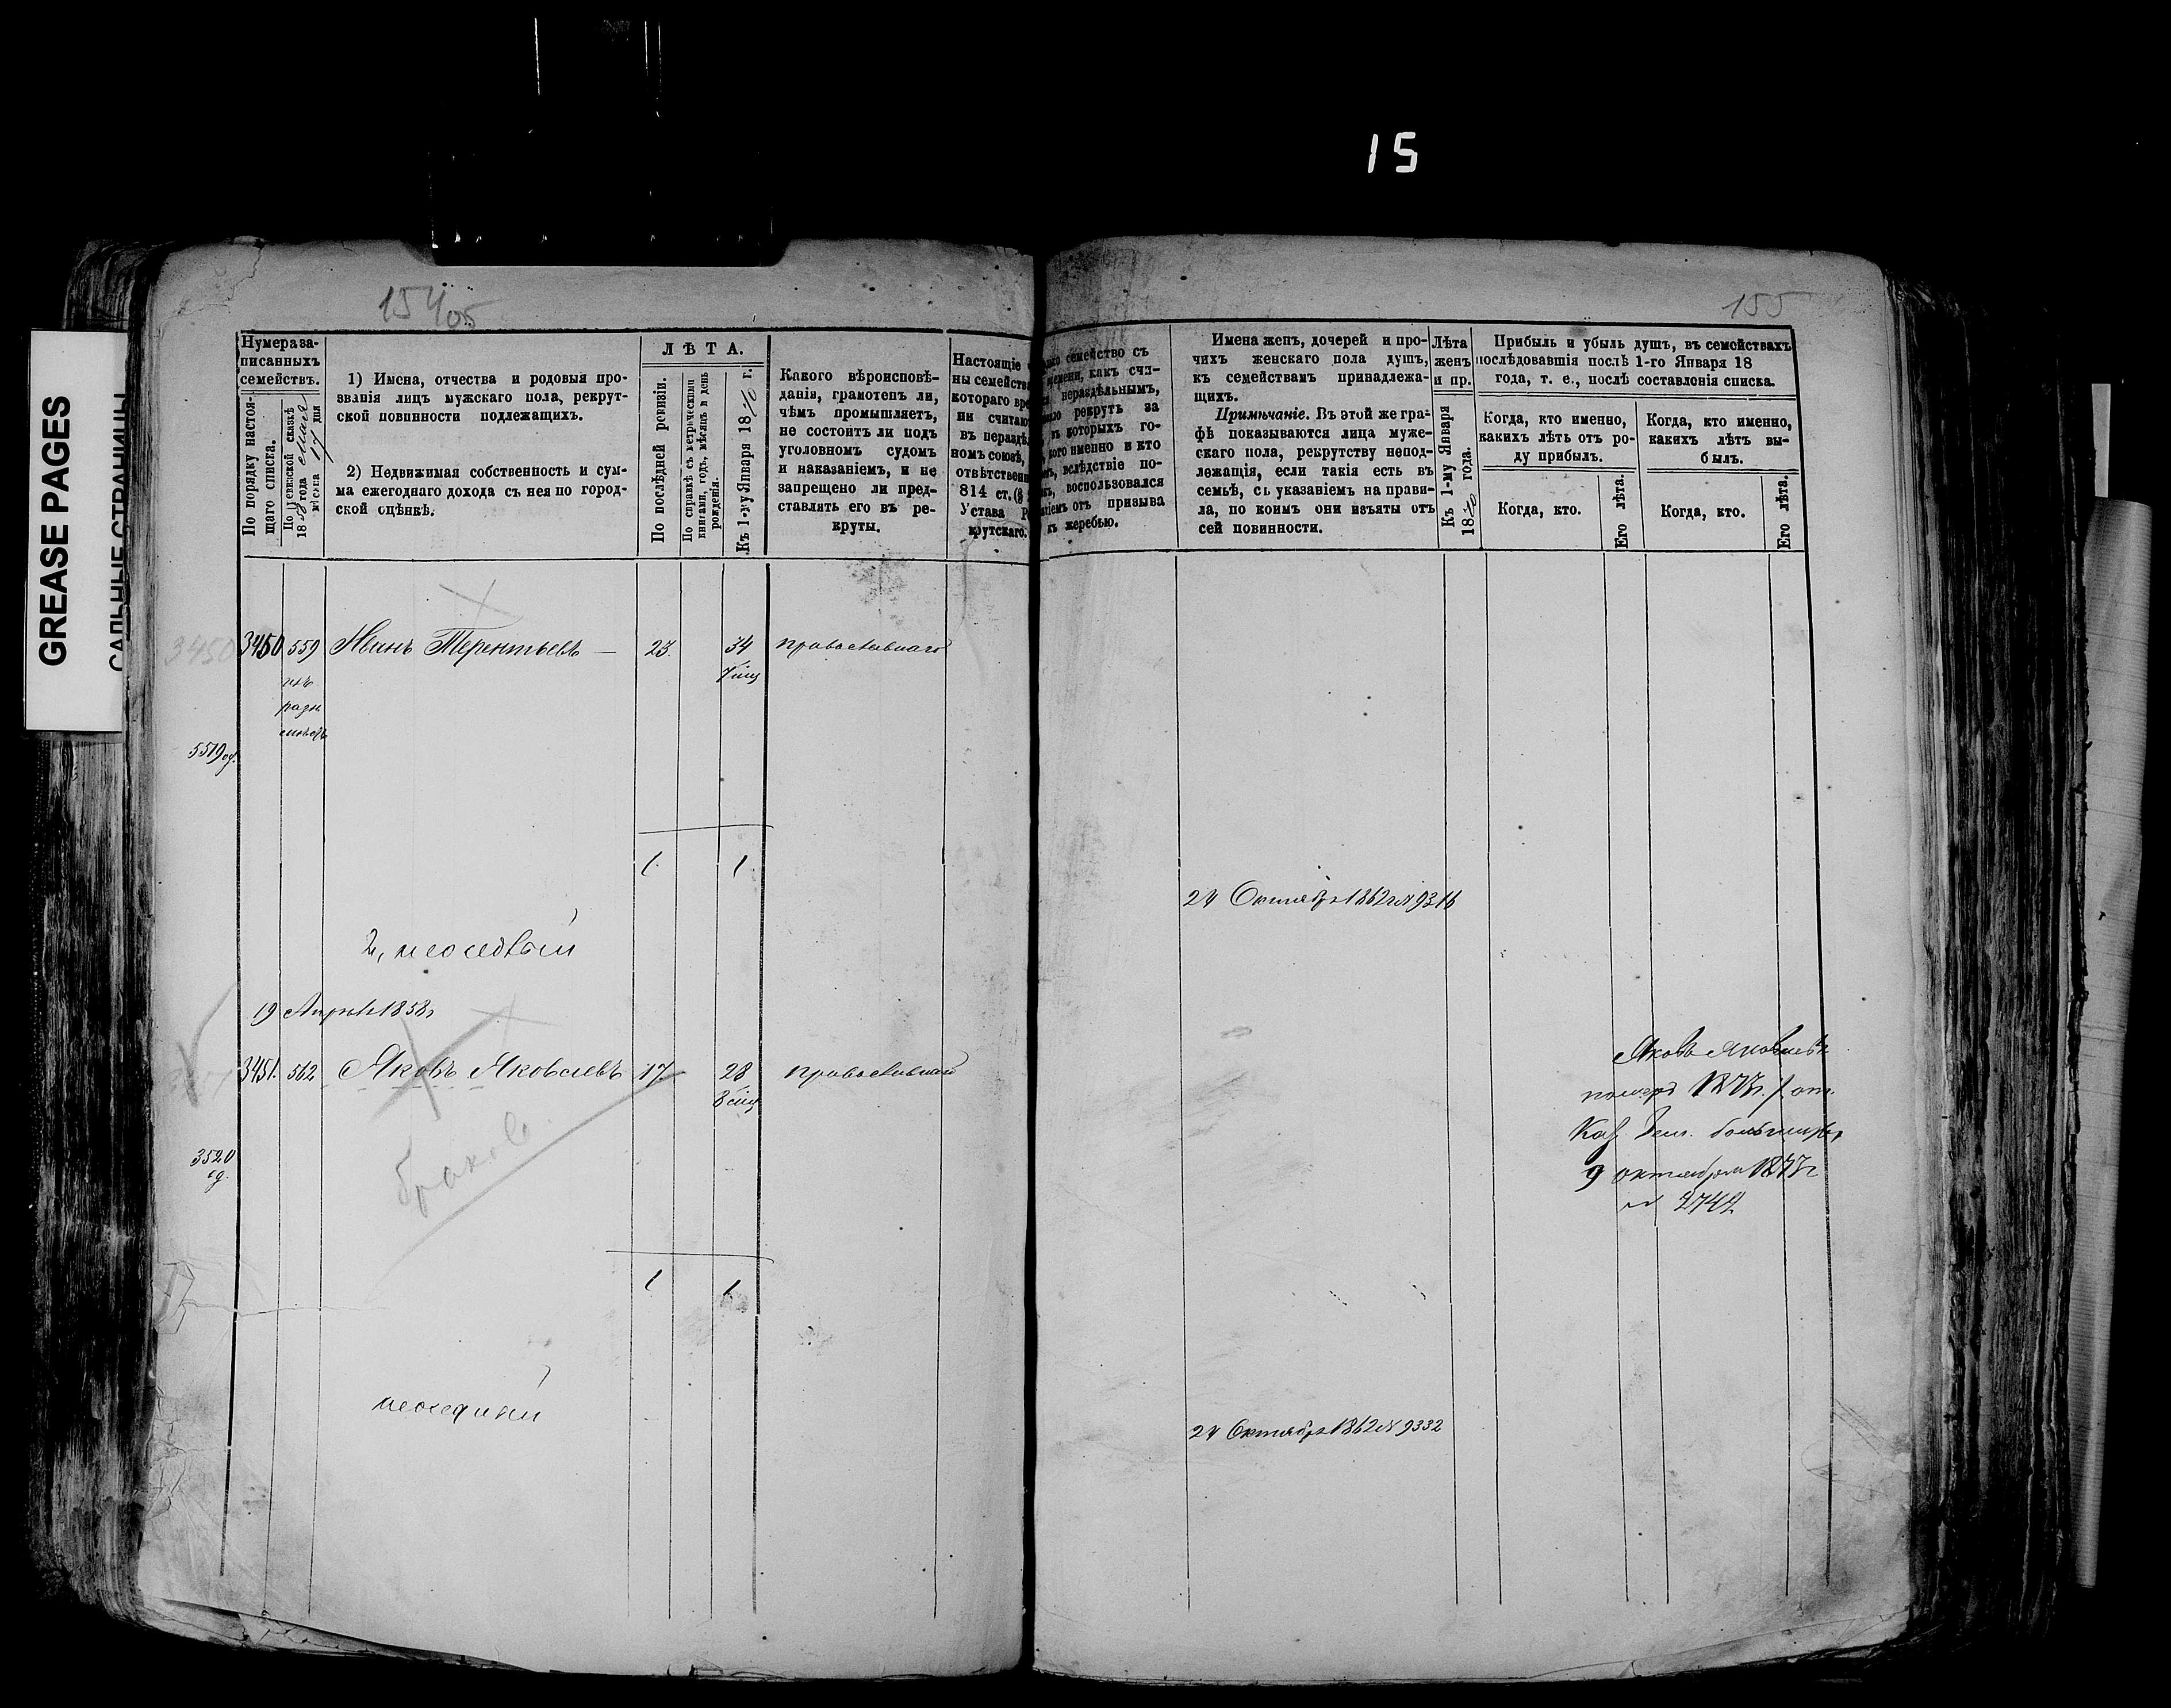 15
GREASE PAGES
САЛЬНЫЕ СТРАНИЦЫ
154об
155
Нумера за-
писанныхъ
семействъ.
По порядку настоя-
щаго списка.
По ревизской сказкѣ
18 года
мѣсяца 17 дня
1) Имена, отчества и родовыя про-
званія лицъ мужскаго пола, рекрут-
ской повинности подлежащихъ.
2) Недвижимая собственность и сум-
ма ежегоднаго дохода съ нея по город-
ской оцѣнкѣ.
ЛѢТА.
По послѣдней ревизіи.
По справкѣ съ метрическими
книгами, годъ, мѣсяцъ и день
рожденія.
Къ 1-му Января 1870 г.
Какого вѣроисповѣ-
данія, грамотенъ ли,
чѣмъ промышляетъ,
не состоитъ ли подъ
уголовномъ судомъ
и наказаніемъ, и не
запрещено ли пред-
ставлять его въ ре-
круты.
Настоящіе
ны семейства
котораго вре
ни считаю
въ нераздѣ
номъ союзѣ,
отвѣтствен
814 ст. (§
Устава Р
крутскаго.
семейство съ
времени, какъ счи-
нераздѣльнымъ,
рекрутъ за
въ которыхъ го-
кого именно и кто
вслѣдствіе по-
воспользовался
отъ призыва
къ жеребью.
Имена женъ, дочерей и про-
чихъ женскаго пола душъ,
къ семействамъ принадлежа-
щихъ.
Примѣчаніе. Въ этой же гра-
фѣ показываются лица муже-
скаго пола, рекрутству непод-
лежащія, если такія есть въ
семьѣ, съ указаніемъ на прави-
ла, по коимъ они изъяты отъ
сей повинности.
Лѣта
женъ
и пр.
Къ 1-му Января
1870 года.
Прибыль и убыль душъ, въ семействахъ
послѣдовавшія послѣ 1-го Января 18
года, т. е., послѣ составленія списка.
Когда, кто именно,
какихъ лѣтъ отъ ро-
ду прибылъ.
Когда, кто именно,
какихъ лѣтъ вы-
былъ.
Когда, кто.
Его лѣта.
Когда, кто.
Его лѣта.
3450 3450 559 Терентьевъ — 23. 34 православнаго
5519 од.
1 1
24 Октября 1862 № 9316
19 Апрѣля 1858
3451. 562 Яковъ Яковлевъ 17. 28 православнаго
3520
од.
Яковъ Яковлевъ
Каз. больницы
9 октября
№
1 1
24 Октября 1862 № 9332